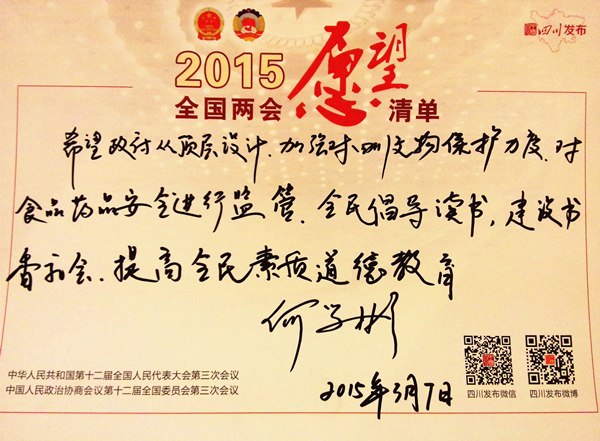 四川发布
2015
全国两会
愿望
清单
希望政府从顶层设计.加强对文物保护力度.对
食品药品安全进行监管.全民倡导读书,建设书
香社会.提高全民素质道德教育
何学彬
2015年3月7日
中华人民共和国第十二届全国人民代表大会第三次会议
中国人民政治协商会议第十二届全国委员会第三次会议
四川发布微信
四川发布微博